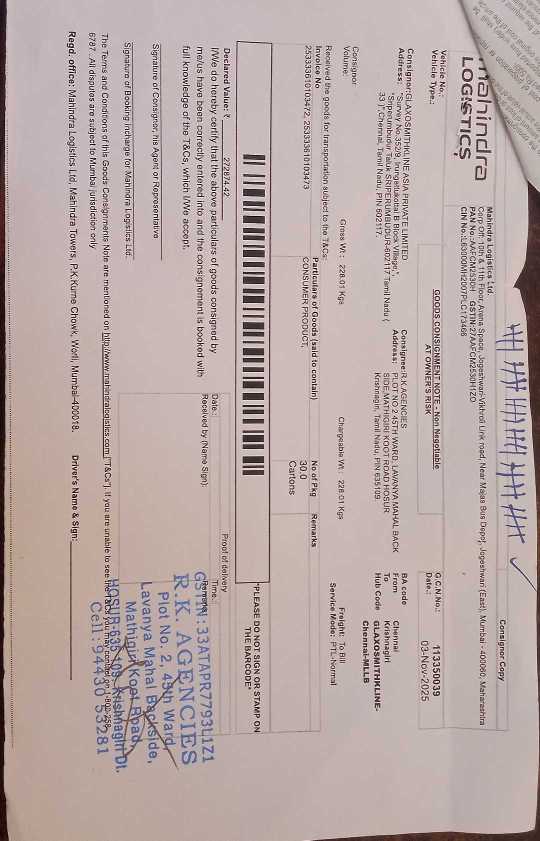 Consignor Copy
mahindra
LOGISTICS
Mahindra Logistics Ltd
Corp Off: 10th & 11th Floor, Arena Space, Jogeshwari-Vikhroli Link road, Near Majas Bus Depot, Jogeshwari (East), Mumbai - 400060, Maharashtra
PAN No.:AAFCM2530H GSTIN:27AAFCM2530H1ZO
CIN No.:L63000MH2007PLC173466
Vehicle No.:
Vehicle Type.:
GOODS CONSIGNMENT NOTE - Non Negotiable
AT OWNER'S RISK
G.C.N.No.: 113350039
Date.: 03-Nov-2025
Consignor:GLAXOSMITHKLINE ASIA PRIVATE LIMITED
Address: "Survey No.35/29, Irungattukottai B Block Village,",
"Sriperumbudur Taluk SRIPERUMBUDUR-602117 Tamil Nadu (
33 )",Chennai, Tamil Nadu, PIN 602117.
Consignee:R.K.AGENCIES
Address: PLOT NO 2 45TH WARD, LAVANYA MAHAL BACK
SIDE,MATHIGIRI KOOT ROAD HOSUR
Krishnagiri, Tamil Nadu, PIN 635109.
BA code
From Chennai
To Krishnagiri
Hub Code GLAXOSMITHKLINE-
Chennai-MLLB
Consignor
Volume:
Gross Wt : 228.01 Kgs
Chargeable Wt : 228.01 Kgs
Freight: To Bill
Service Mode: PTL-Normal
Received the goods for transportation subject to the T&Cs:
Invoice No
Particulars of Goods (said to contain)
No of Pkg
Remarks
25333610103472, 25333610103473
CONSUMER PRODUCT,
30.0
Cartons
"PLEASE DO NOT SIGN OR STAMP ON
THE BARCODE"
Declared Value: ₹ 272874.42
I/We do hereby certify that the above particulars of goods consigned by
me/us have been correctly entered into and the consignement is booked with
full knowledge of the T&Cs, which I/We accept.
Proof of delivery
Date.:
Time.:
Received by (Name Sign):
Remarks
Signature of Consignor, his Agent or Representative
Signature of Booking Incharge for Mahindra Logistics Ltd.
GSTIN:33ATAPR7793L1Z1
R.K. AGENCIES
Plot No. 2, 45th Ward,
Lavanya Mahal Backside,
Mathigiri Koot Road,
HOSUR-635 109. Krishnagiri Dt.
Cell: 94430 53281
The Terms and Conditions of this Goods Consignments Note are mentioned on http://www.mahindralogistics.com ("T&Cs"). If you are unable to see the T&Cs you may contact on 1-800-258-
6787 . All disputes are subject to Mumbai jurisdiction only
Regd. office: Mahindra Logistics Ltd. Mahindra Towers, P.K.Kurne Chowk, Worli, Mumbai-400018.
Driver's Name & Sign: